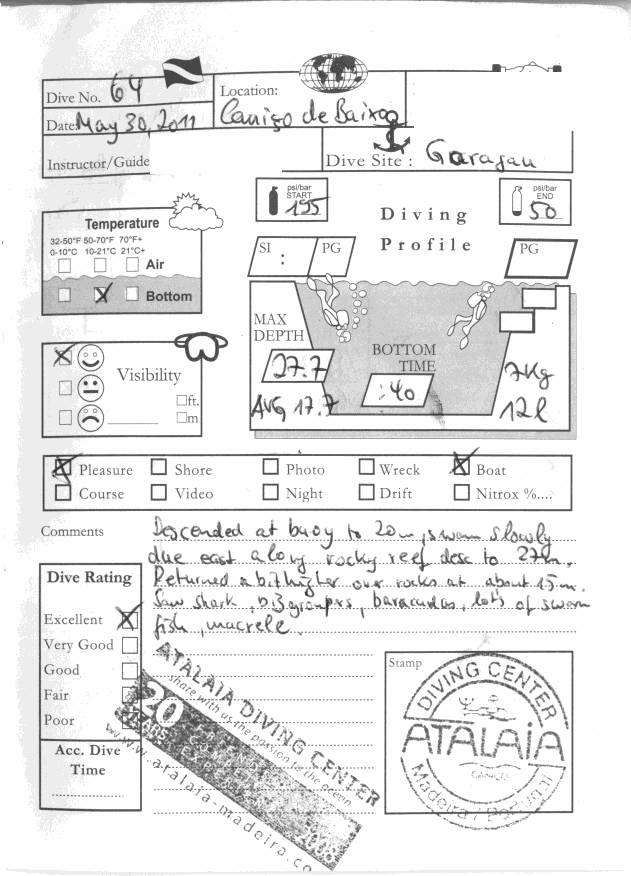 Dive No. 64
Location:
Date: May 30, 2011
Caniço de Baixo
Instructor/Guide
Dive Site : Garajau
psi/bar
START
195
Diving
Profile
psi/bar
END
50
Temperature
32-50°F 50-70°F 70°F+
0-10°C 10-21°C 21°C+
Air
Bottom
SI :
PG
PG
MAX
DEPTH
27.7
AVG 17.7
BOTTOM
TIME
:40
7kg
12l
Visibility
ft.
m
Pleasure Shore Photo Wreck Boat
Course Video Night Drift Nitrox %....
Comments
Descended at buoy to 20m, swam slowly
due east along rocky reef desc to 27m.
Returned a bit higher over rocks at about 15m.
Saw shark, big groupers, baracudas, lots of swarm
fish, macrele.
Dive Rating
Excellent
Very Good
Good
Fair
Poor
Acc. Dive
Time
ATALAIA DIVING CENTER
share with us the passion for the ocean
20
YEARS
2008
www.atalaia-madeira.co
Stamp
DIVING CENTER
ATALAIA
CANIÇO
Madeira / Portugal